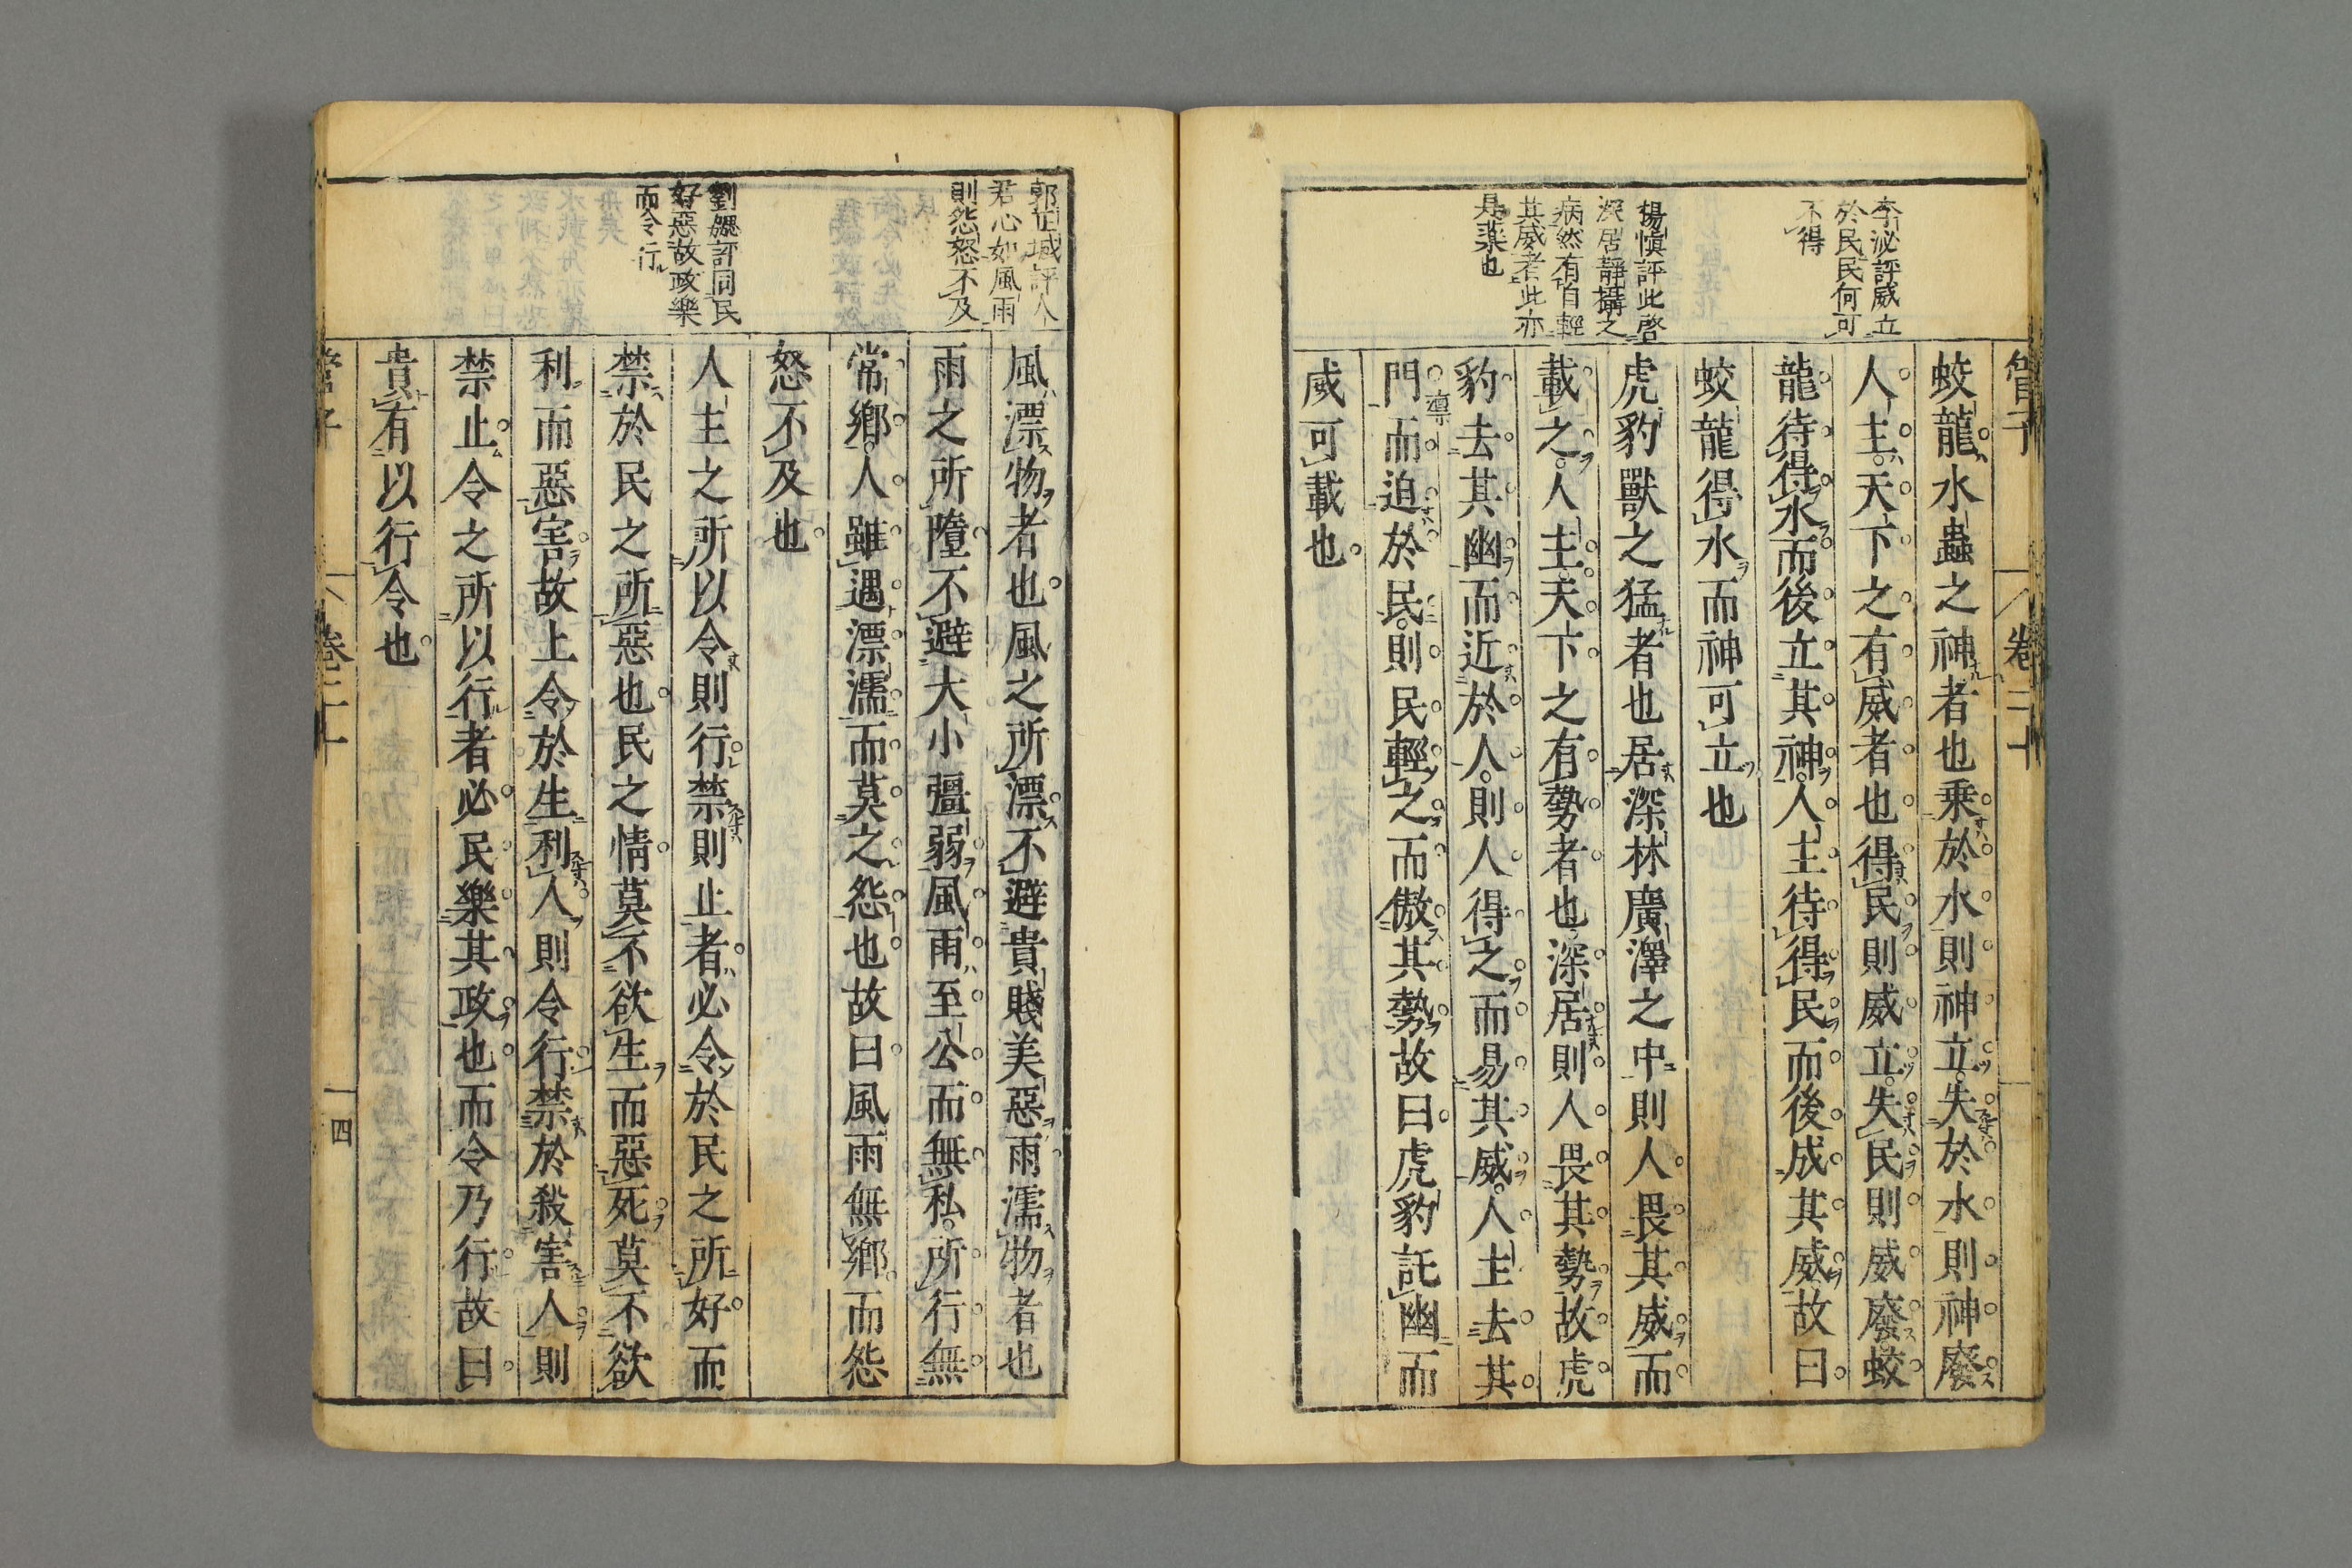 管子
卷二十
李泌評威立
於民民何可
不得
楊愼評此啓
深居靜攝之
病然有自輕
其威者此亦
是藥也
蛟龍水蟲之神者也乘於水則神立失於水則神廢
人主天下之有威者也得民則威立失民則威廢蛟
龍待得水而後立其神人主待得民而後成其威故曰
蛟龍得水而神可立也
虎豹獸之猛者也居深林廣澤之中則人畏其威而
載之人主天下之有勢者也深居則人畏其勢故虎
豹去其幽而近於人則人得之而易其威人主去其
門而迫於民則民輕之而傲其勢故曰虎豹託幽而
威可載也
郭正域評人
君心如風雨
則怨怒不及
劉勰評同民
好惡故政樂
而令行
風漂物者也風之所漂不避貴賤美惡雨濡物者也
雨之所墮不避大小彊弱風雨至公而無私所行無
常鄉人雖遇漂濡而莫之怨也故曰風雨無鄉而怨
怒不及也
人主之所以令則行禁則止者必令於民之所好而
禁於民之所惡也民之情莫不欲生而惡死莫不欲
利而惡害故上令於生利人則令行禁於殺害人則
禁止令之所以行者必民樂其政也而令乃行故曰
貴有以行令也
管子
卷二十
四